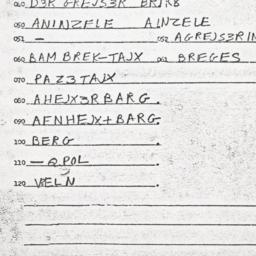 040 D3R GREJS3R BRIRB
050 ANINZELE AINZELE
051 — 052 AGREJS3RIN
060 BAM BREK-TAJX 061 BREGES
070 PAZ3TAJX
080 AHEJX3RBARG.
090 AFNHEJX+BARG.
100 BERG.
110 —QPOL.
120 VELN.